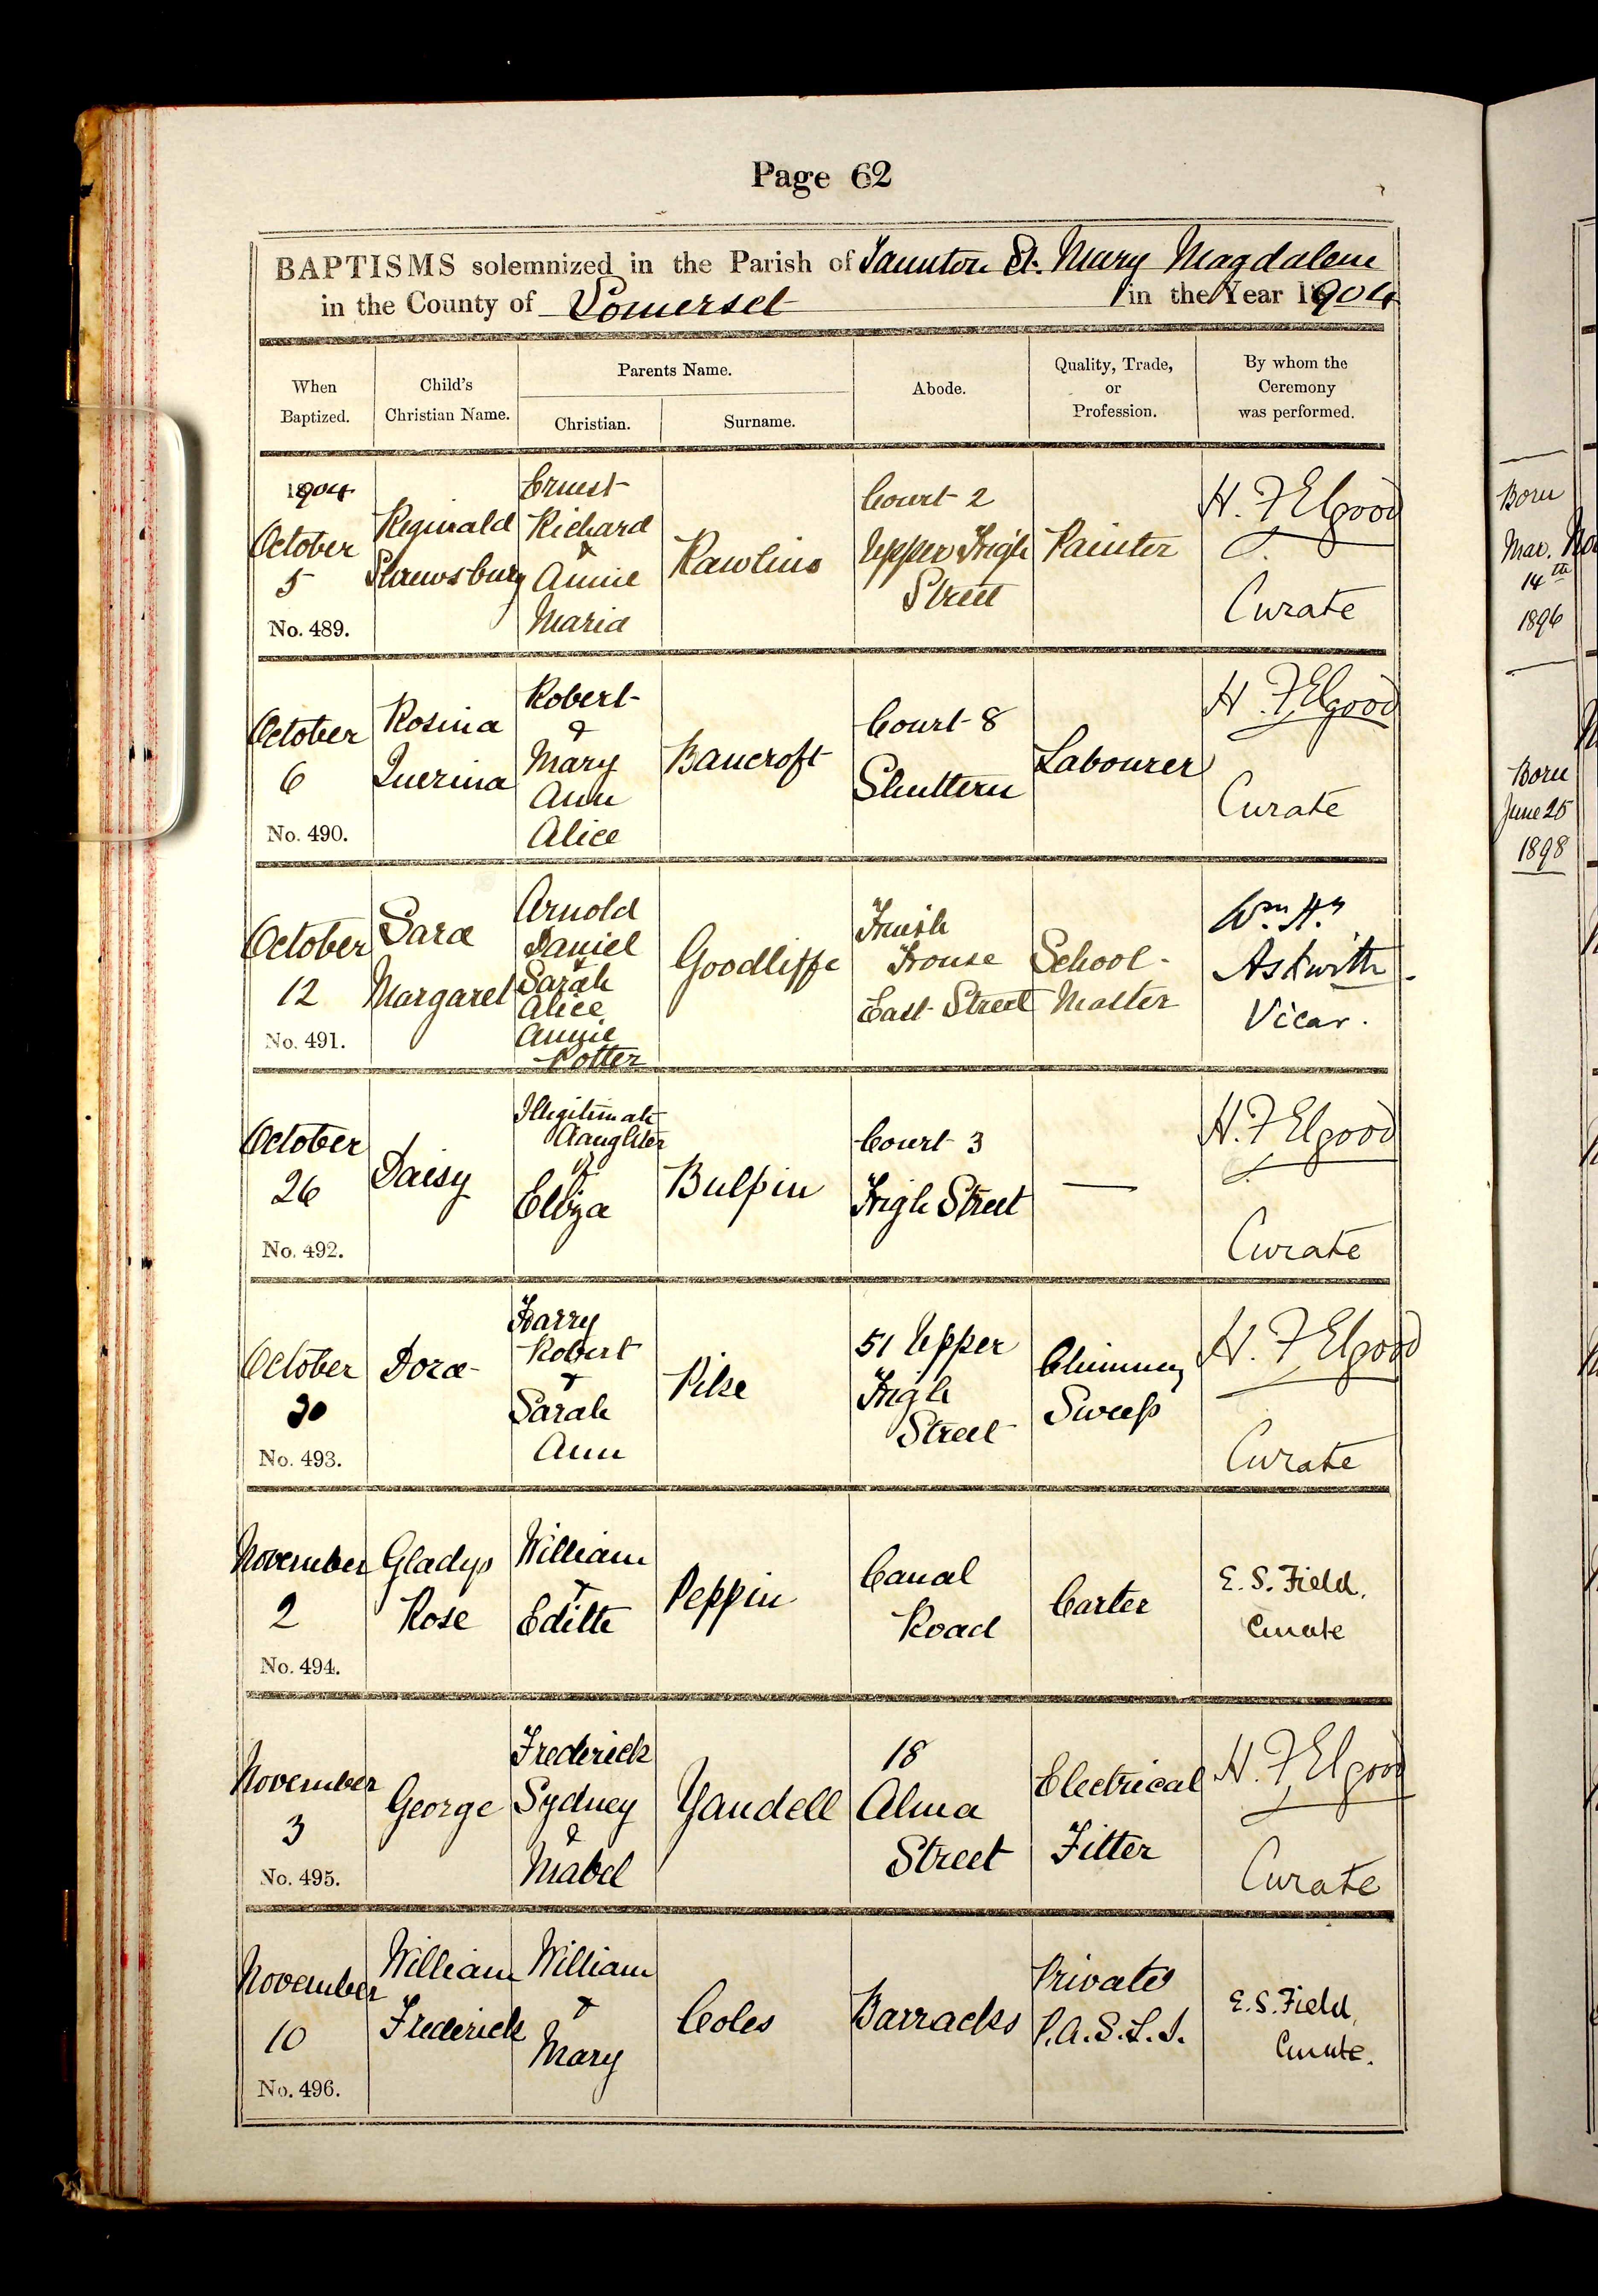 Page 62
BAPTISMS solemnized in the Parish of Taunton St. Mary Magdalene
in the County of Somerset in the Year 1904
When Baptized.
Child's Christian Name.
Parents Name.
Christian.
Surname.
Abode.
Quality, Trade, or Profession.
By whom the Ceremony was performed.
1904
October
5
No. 489.
Reginald
Shrewsbury
Ernest
Richard
&
Annie
Maria
Rawlins
Court 2
Upper High
Street
Painter
H. F Elgood
Curate
October
6
No. 490.
Rosina
Querina
Robert
&
Mary
Ann
Alice
Bancroft
Court 8
Shuttern
Labourer
H. F Elgood
Curate
October
12
No. 491.
Sara
Margaret
Arnold
Daniel
&
Sarah
Alice
Annie
Potter
Goodliffe
House
East Street
School-
Master
Wm. Hy
Askwith.
Vicar.
October
26
No. 492.
Daisy
Illegitimate
daughter
of
Eliza
Bulpin
Court 3
High Street
—
H. F Elgood
Curate
October
30
No. 493.
Dora
Harry
Robert
&
Sarah
Ann
Pike
51 Upper
High
Street
Chimney
Sweep
H. F Elgood
Curate
November
2
No. 494.
Gladys
Rose
William
&
Edith
Peppin
Canal
Road
Carter
E. S. Field,
Curate
November
3
No. 495.
George
Frederick
Sydney
&
Mabel
Yandell
18
Alma
Street
Electrical
Fitter
H. F Elgood
Curate
November
10
No. 496.
William
Frederick
William
&
Mary
Coles
Barracks
Private
P.A.S.L.I.
E. S. Field,
Curate.
Born
Mar.
14th
1896
Born
June 25
1898